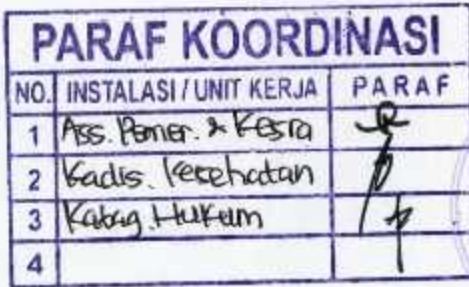 PARAF KOORDINASI
NO. INSTALASI / UNIT KERJA PARAF
1 Ass. Pemer. & Kesra
2 Kadis. Kesehatan
3 Kabag. Hukum
4